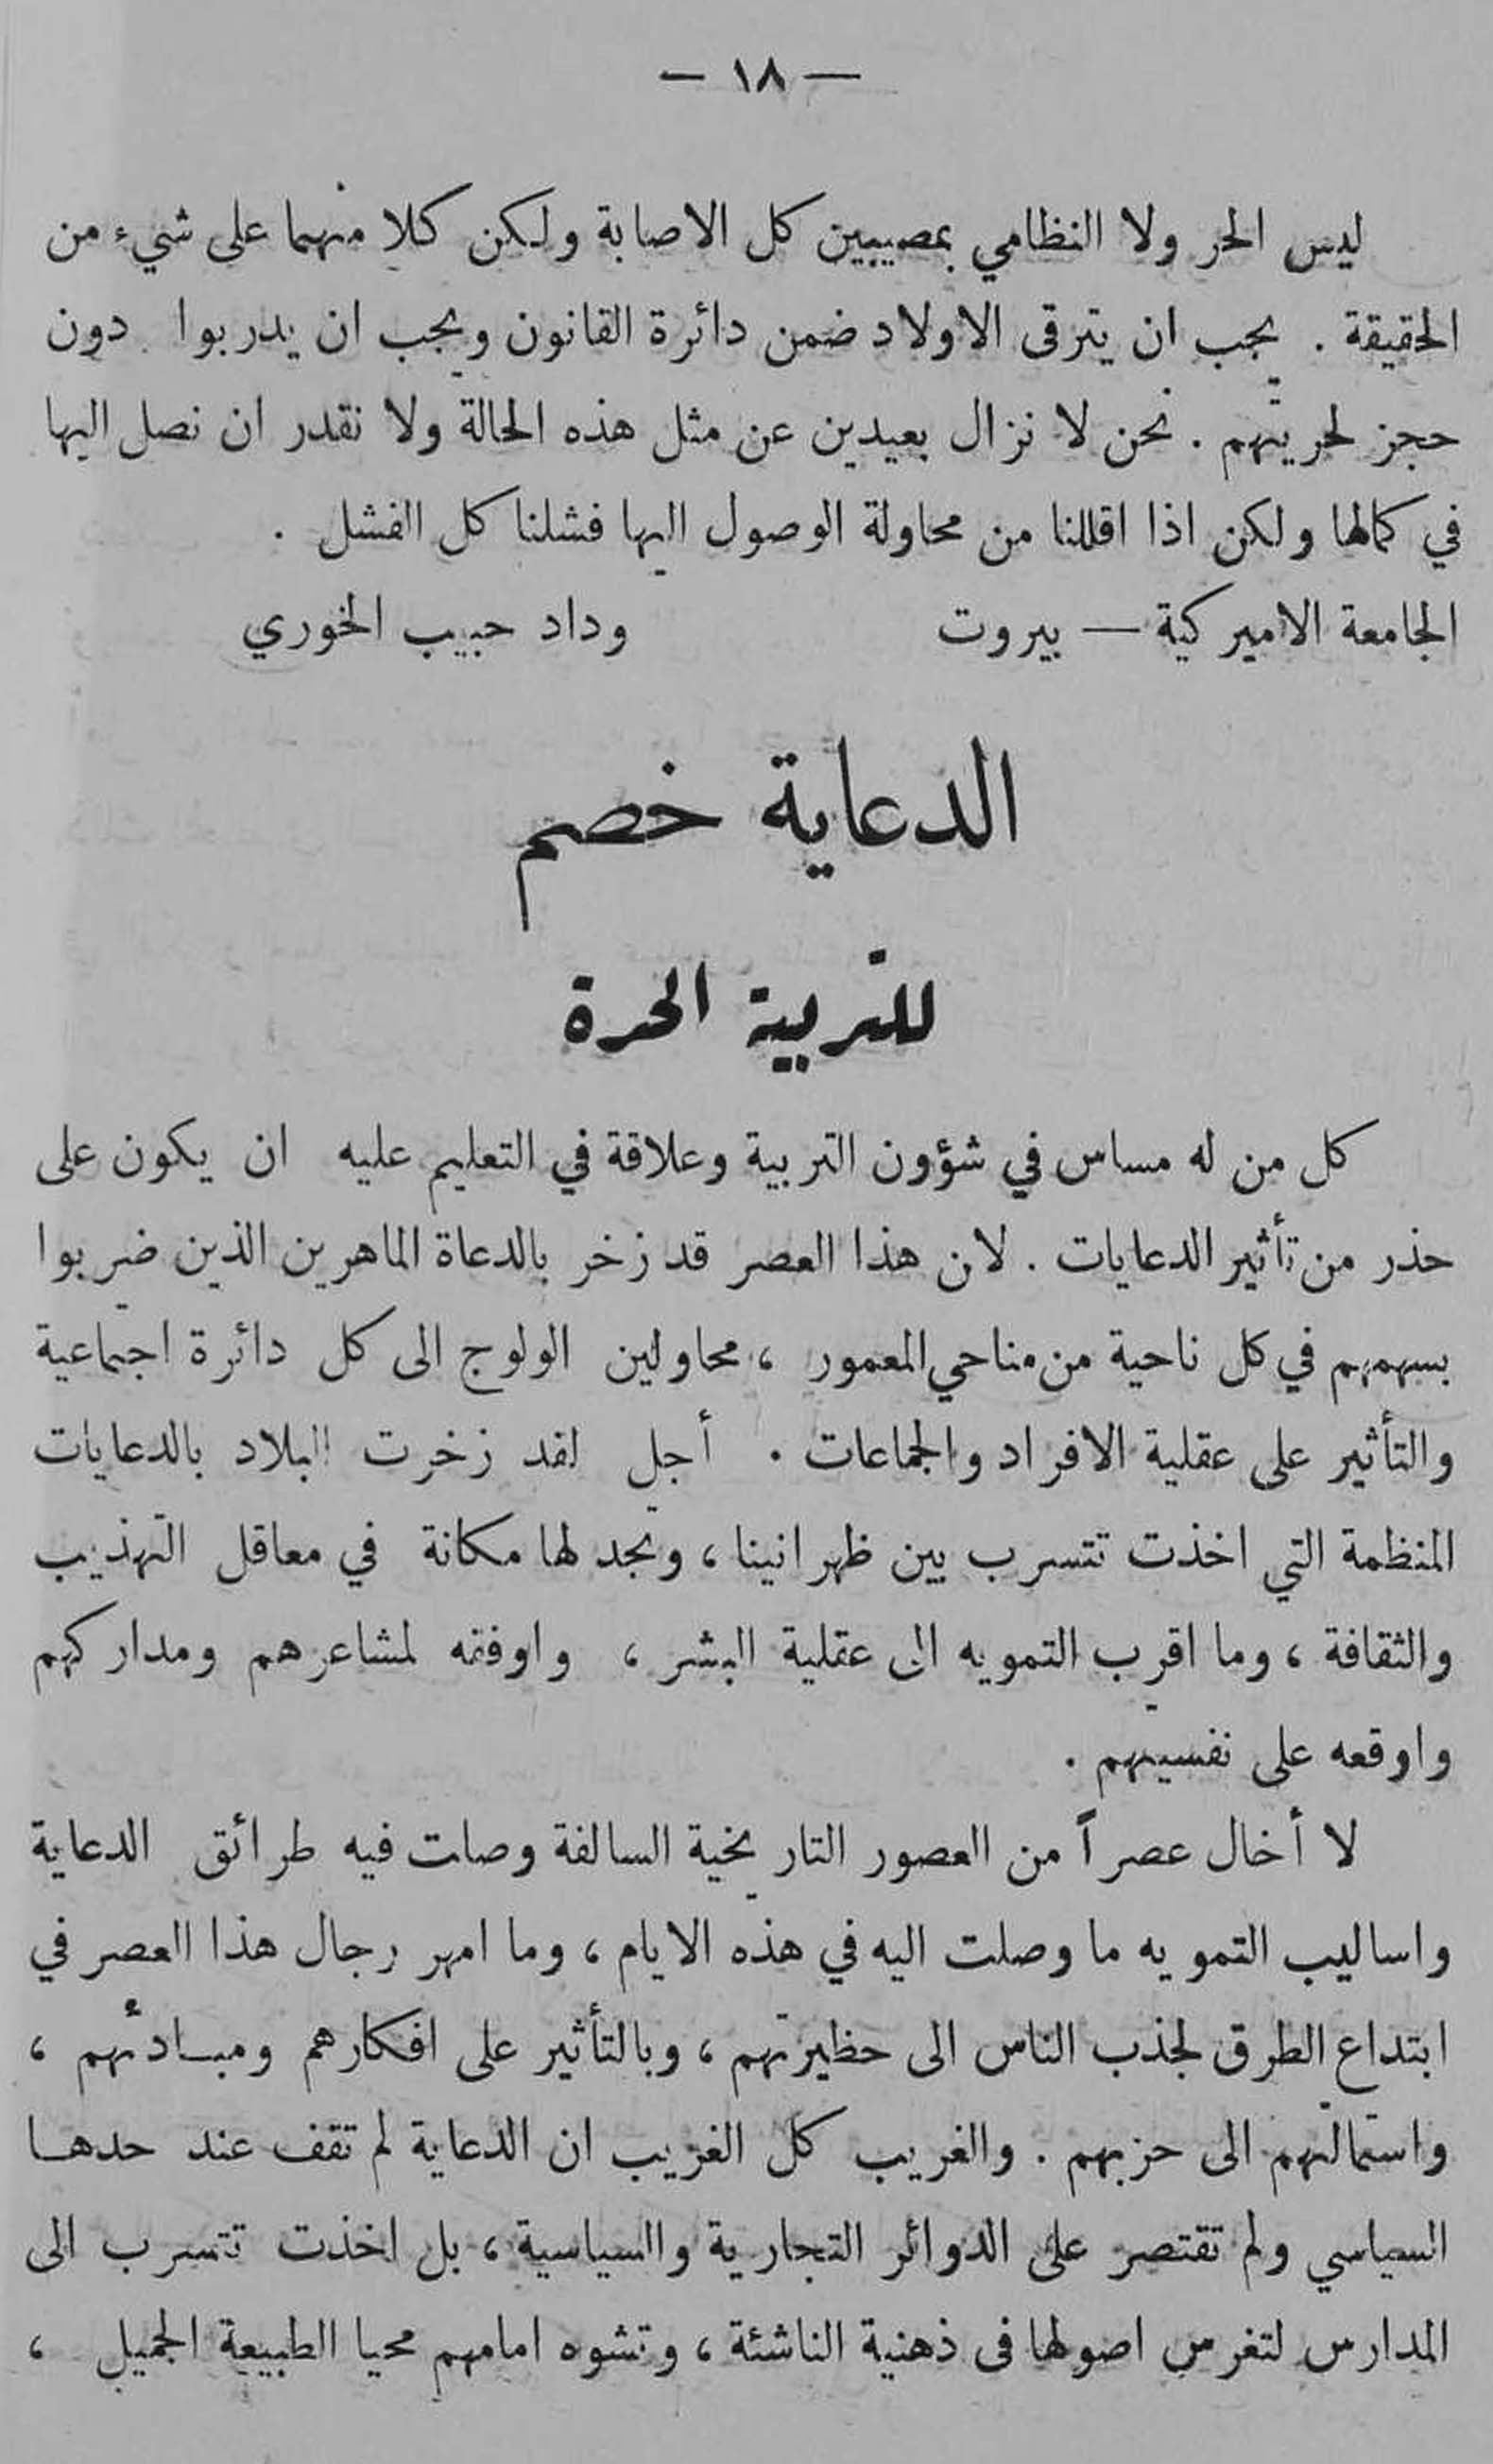 — ١٨ —
ليس الحر ولا النظامي بمصيبين كل الاصابة ولكن كلا منهما على شيء من
الحقيقة . يجب ان يترقى الاولاد ضمن دائرة القانون ويجب ان يدربوا دون
حجز لحريتهم . نحن لا نزال بعيدين عن مثل هذه الحالة ولا نقدر ان نصل اليها
في كمالها ولكن اذا اقللنا من محاولة الوصول اليها فشلنا كل الفشل .
الجامعة الاميركية — بيروت وداد حبيب الخوري
الدعاية خصم
للتربية الحرة
كل من له مساس في شؤون التربية وعلاقة في التعليم عليه ان يكون على
حذر من تأثير الدعايات . لان هذا العصر قد زخر بالدعاة الماهرين الذين ضربوا
بسهمهم في كل ناحية من مناحي المعمور ، محاولين الولوج الى كل دائرة اجتماعية
والتأثير على عقلية الافراد والجماعات . أجل لقد زخرت البلاد بالدعايات
المنظمة التي اخذت تتسرب بين ظهرانينا ، وتجد لها مكانة في معاقل التهذيب
والثقافة ، وما اقرب التمويه الى عقلية البشر ، واوفقه لمشاعرهم ومداركهم
واوقعه على نفسيتهم .
لا أخال عصراً من العصور التاريخية السالفة وصلت فيه طرائق الدعاية
واساليب التمويه ما وصلت اليه في هذه الايام ، وما امهر رجال هذا العصر في
ابتداع الطرق لجذب الناس الى حظيرتهم ، وبالتأثير على افكارهم ومبادئهم ،
واستمالتهم الى حزبهم . والغريب كل الغريب ان الدعاية لم تقف عند حدها
السياسي ولم تقتصر على الدوائر التجارية والسياسية ، بل اخذت تتسرب الى
المدارس لتغرس اصولها في ذهنية الناشئة ، وتشوه امامهم محيا الطبيعة الجميل ،